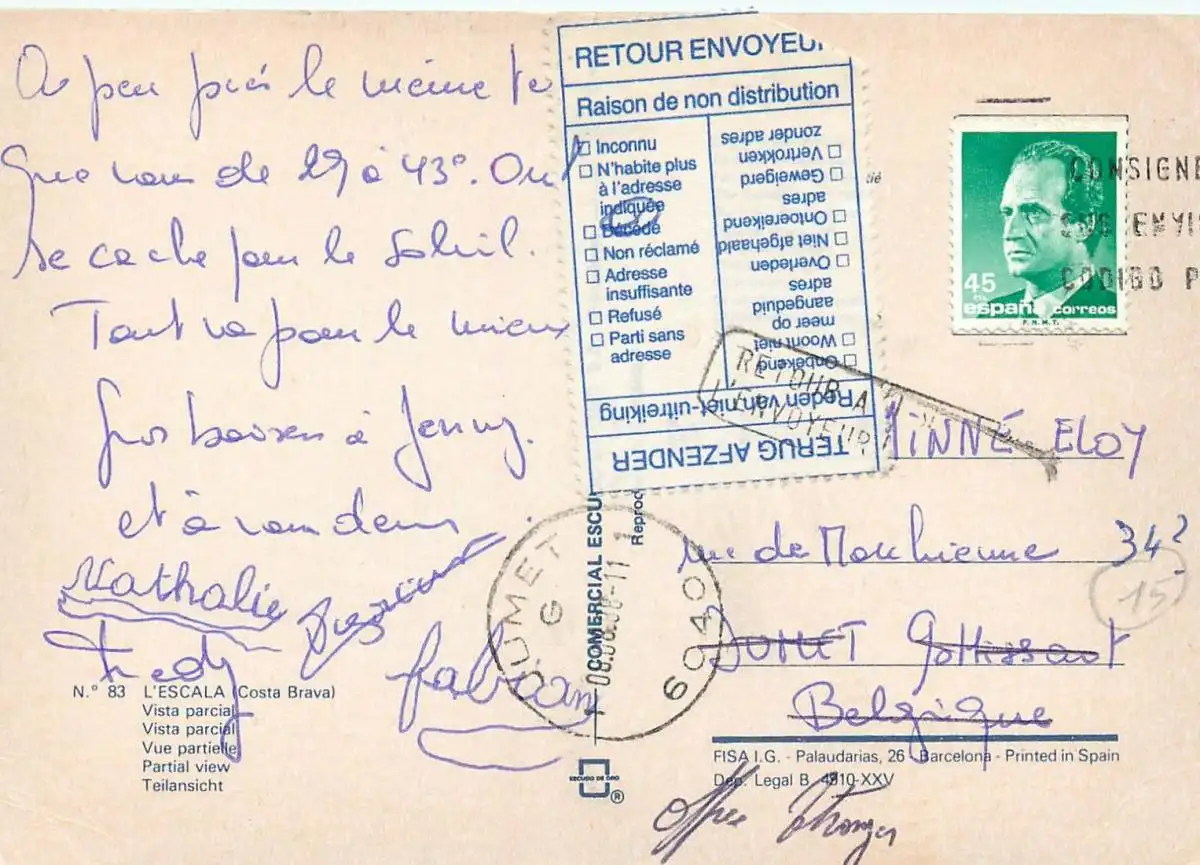 A peu près le même te
Que vous de 29 à 43°. On
se cache pour le Soleil.
Tout va pour le mieux
Gros baisers à Jenny.
et à vous deux
Nathalie
Fredy
Fabian
N.° 83 L'ESCALA (Costa Brava)
Vista parcial
Vista parcial
Vue partielle
Partial view
Teilansicht
RETOUR ENVOYEUR
Raison de non distribution
Inconnu
N'habite plus
à l'adresse
indiquée
Décédé
Non réclamé
Adresse
insuffisante
Refusé
Parti sans
adresse
TERUG AFZENDER
Reden van niet-uitreiking
Onbekend
Woont niet
meer op
aangeduid
adres
Overleden
Niet afgehaald
Ontoereikend
adres
Geweigerd
Vertrokken
zonder adres
RETOUR A
L'ENVOYEUR
COMERCIAL ESCU
Reproc
JUMET
G
6040
ESCUDO DE ORO
®
45
PTA
españa correos
F.N.M.T.
CONSIGNE
SUS ENVIO
CODIGO P
MINNÉ ELOY
rue de Marchienne 34²
15
JUMET Gohissart
Belgique
FISA I.G. - Palaudarias, 26 - Barcelona - Printed in Spain
Dep. Legal B. 4910-XXV